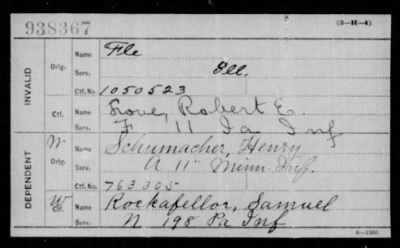 938367
(3—H—A)
INVALID
Orig.
Name Fle
Serv. Ill.
Ctf. No. 1050523
Ctf.
Name Love, Robert E.
Serv. F 11 Ia Inf
DEPENDENT
W Orig.
Name Schumacher, Henry
Serv. A 11" Minn. Inf.
Ctf. No. 763305
W Ctf.
Name Rockafellor, Samuel
Serv. N 198 Pa Inf